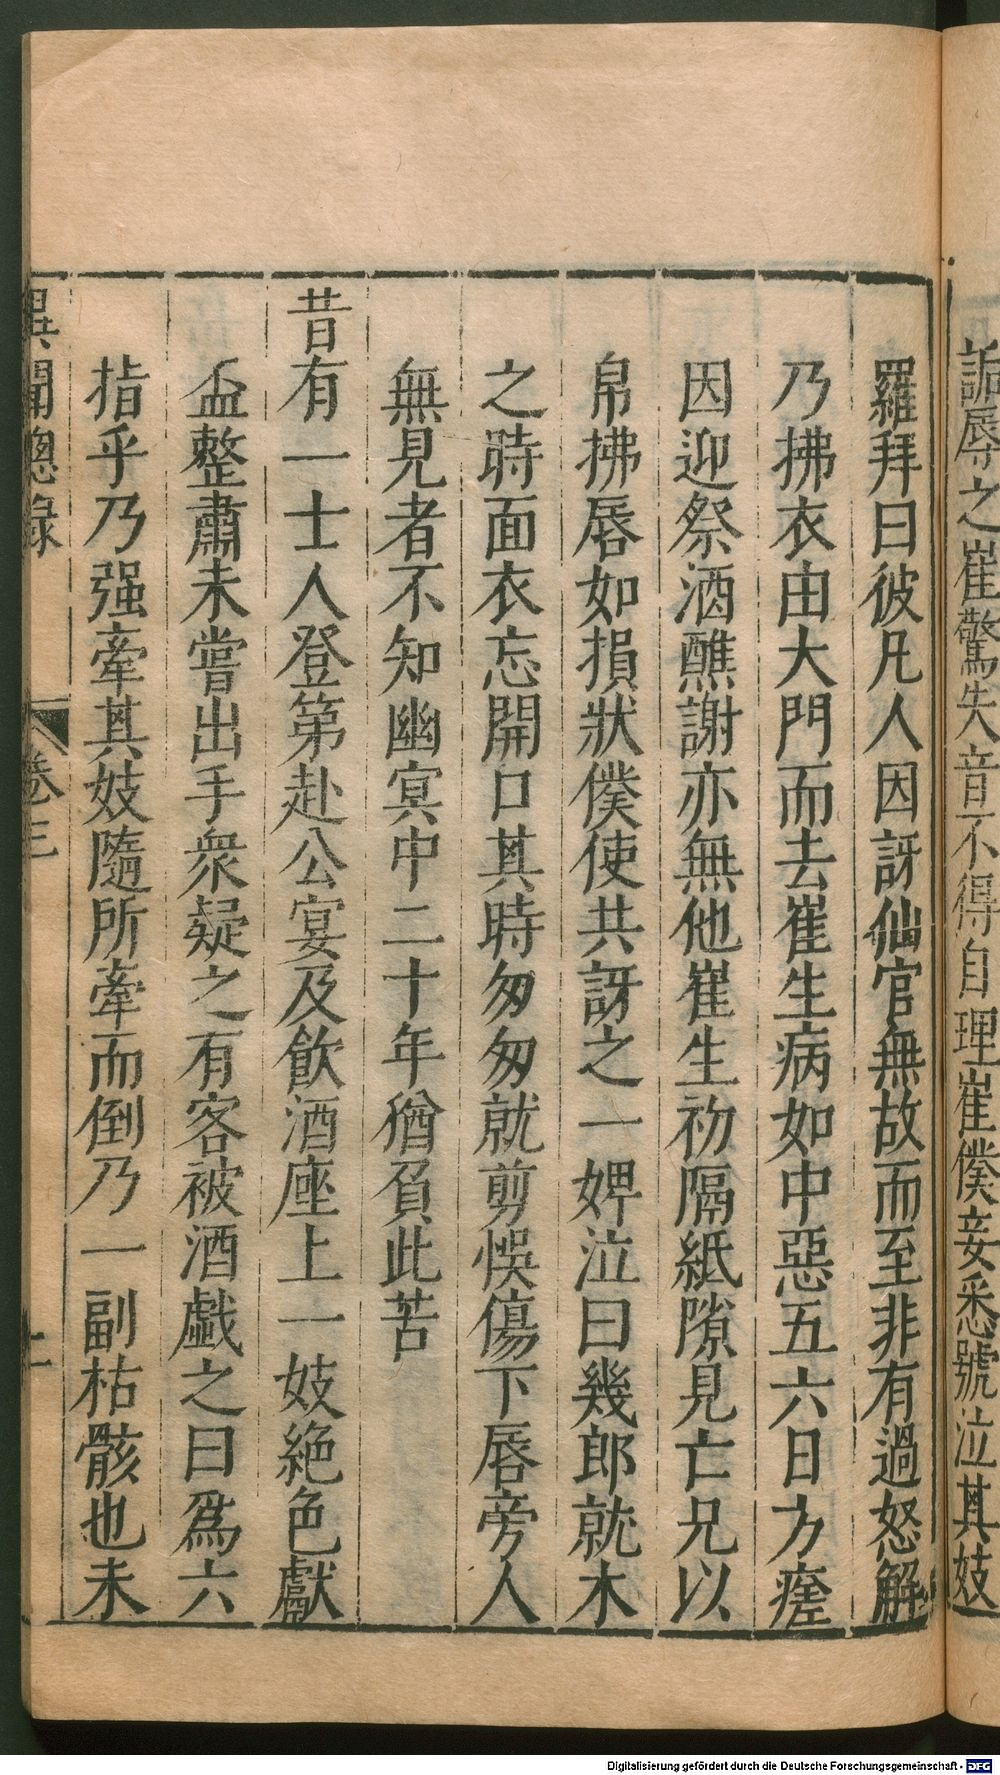 詬辱之崔驚失音不得自理崔僕妾悉號泣其妓
羅拜曰彼凡人因訝仙官無故而至非有過怒解
乃拂衣由大門而去崔生病如中惡五六日方瘥
因迎祭酒醮謝亦無他崔生初隔紙隙見亡兄以
帛拂唇如損狀僕使共訝之一婢泣曰幾郎就木
之時面衣忘開口其時匆匆就剪悞傷下唇旁人
無見者不知幽冥中二十年猶負此苦
昔有一士人登第赴公宴及飲酒座上一妓絶色獻
盃整肅未嘗出手衆疑之有客被酒戲之曰爲六
指乎乃强牽其妓隨所牽而倒乃一副枯骸也未
異聞總錄
卷三
Digitalisierung gefördert durch die Deutsche Forschungsgemeinschaft - DFG